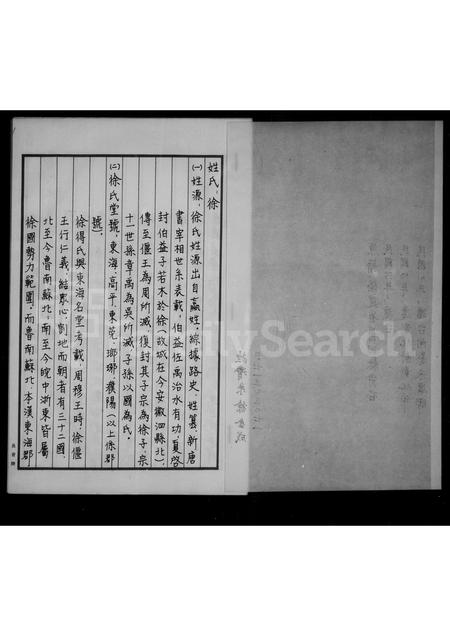 姓氏：徐
㈠姓源：徐氏姓源出自嬴姓，綜據路史、姓纂、新唐
書宰相世系表載，伯益佐禹治水有功，夏啓
封伯益子若木於徐（故城在今安徽泗縣北），
傳至偃王為周所滅，復封其子宗為徐子，宗
十一世孫章禹為吳所滅，子孫以國為氏。
㈡徐氏堂號：東海、高平、東莞、瑯琊、濮陽（以上係郡
號）。
徐得氏與東海名堂考載，周穆王時，徐偃
王行仁義，結眾心，割地而朝者有三十二國，
北至今魯南蘇北，南至今皖中浙東皆屬
徐國勢力範圍，而魯南蘇北，本漢東海郡
FamilySearch